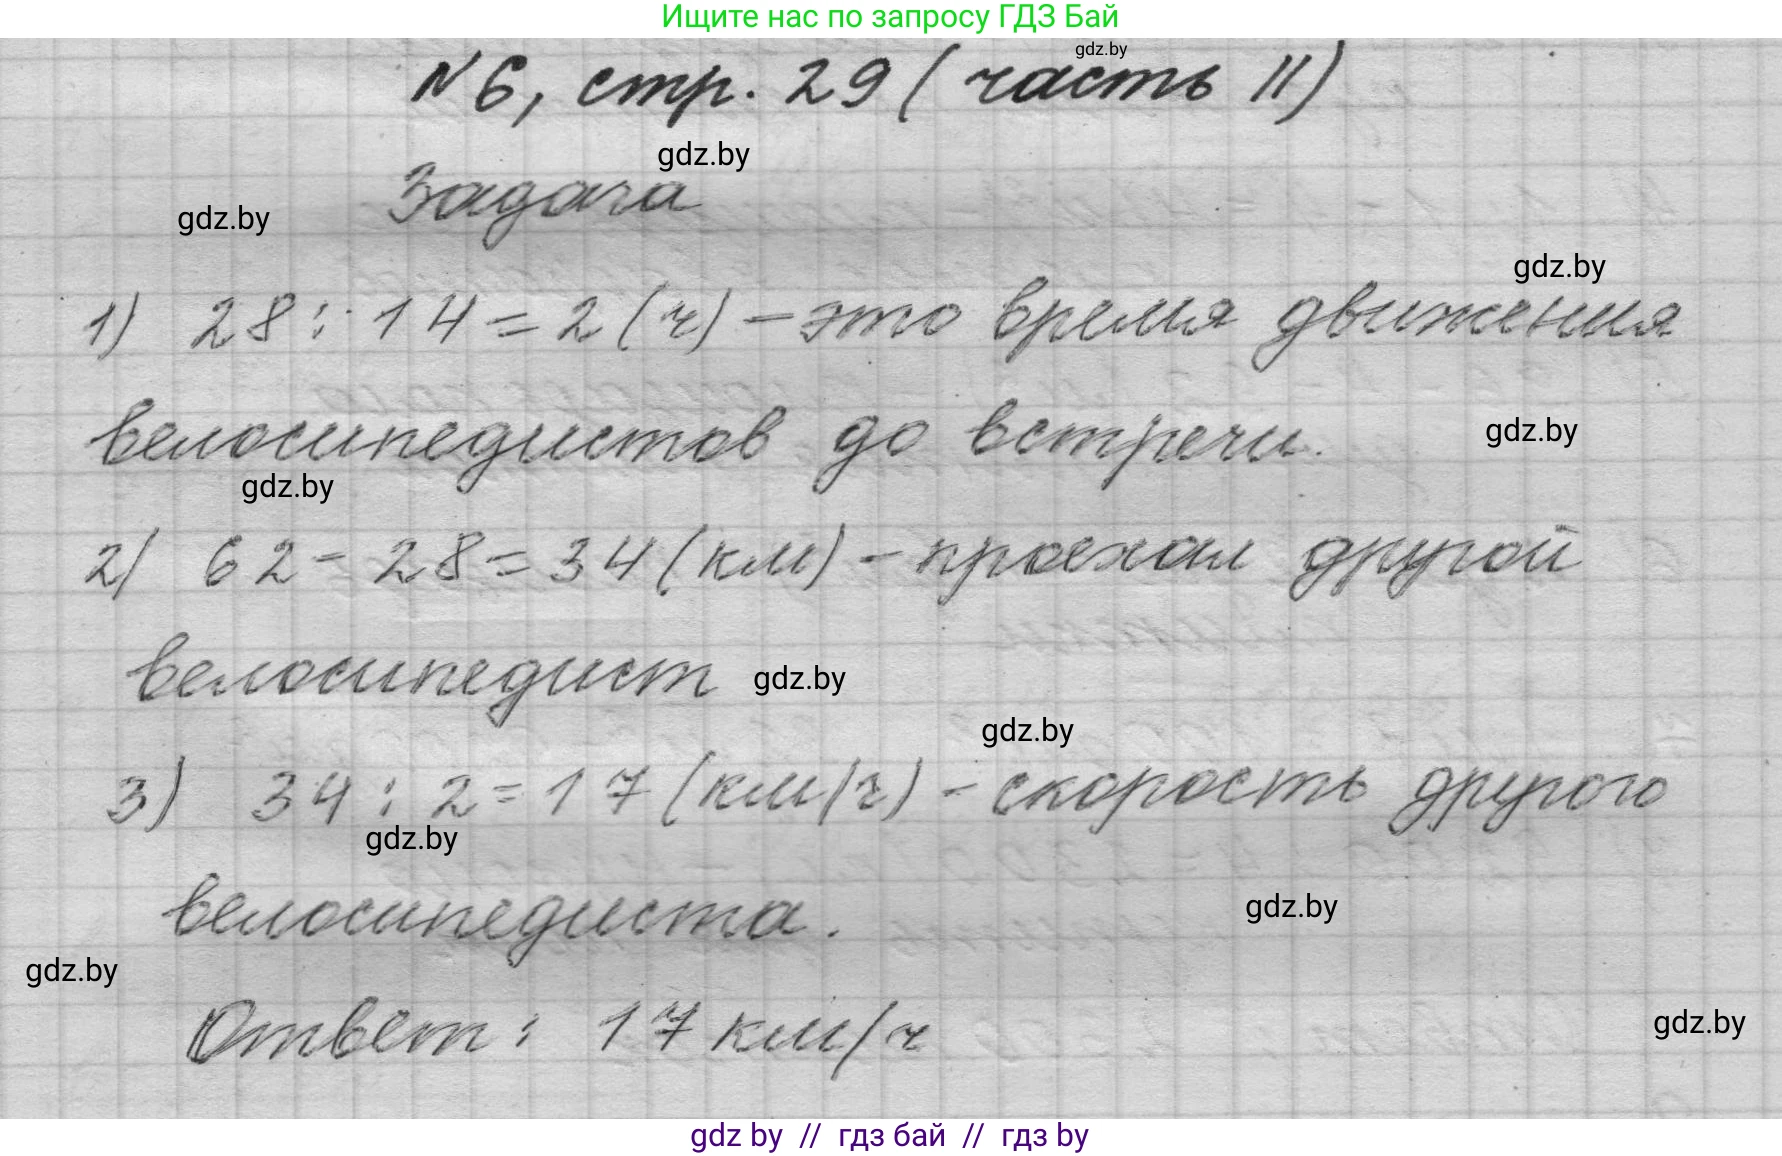 Ищите нас по запросу ГДЗ Бай
gdz.by
№6, стр. 29 (часть II)
gdz.by
Задача
gdz.by
gdz.by
1) 28 : 14 = 2 (ч) - это время движения
велосипедистов до встречи.
gdz.by
gdz.by
2) 62 - 28 = 34 (км) - проехал другой
велосипедист
gdz.by
gdz.by
3) 34 : 2 = 17 (км/ч) - скорость другого
gdz.by
велосипедиста.
gdz.by
gdz.by
Ответ: 17 км/ч
gdz.by
gdz by // гдз бай // гдз by